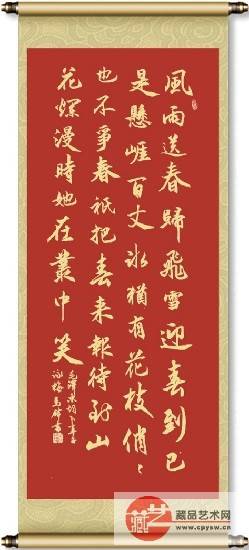 風雨送春歸飛雪迎春到已
是懸崖百丈冰猶有花枝俏〻
也不爭春祇把春來報待到山
花爛漫時她在叢中笑
毛澤東詞卜算子
詠梅
藏品艺术网
www.cpysw.cn